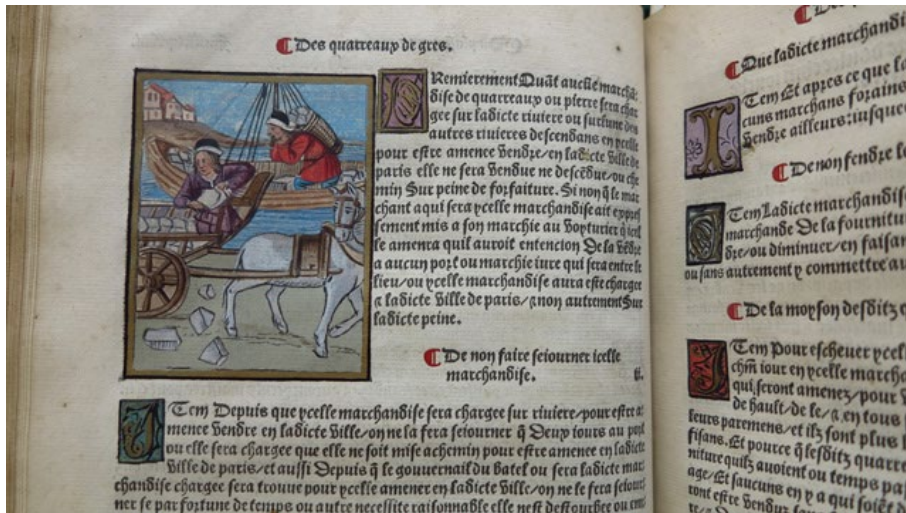 Des quarreaux de gres.
PRemierement Quãt aucũe marchã-
dise de quarreaux ou pierre sera char
gee sur ladicte riuiere ou sur lune des
autres riuieres descendans en ycelle
pour estre amence vendre/en ladicte ville de
paris elle ne sera vendue ne descẽdue/ou che
min Sur peine de forfaiture. Si non q̃ le mar
chant a qui sera ycelle marchandise ait expres
sement mis a son marchie au voyturier q̃ icell
le amenra quil auroit entencion De la vẽdre
a aucun port ou marchie iure qui sera entre le
lieu/ou ycelle marchandise aura este chargee
a ladicte ville de paris/⁊ non autrement Sur
ladicte peine.
De non faire seiourner icelle
marchandise. ii.
ITem Depuis que ycelle marchandise sera chargee sur riuiere/pour estre a
mence vendre en ladicte ville/on ne la fera seiourner q̃ Deux iours au port
ou elle sera chargee que elle ne soit mise achemin pour estre amence en ladicte
ville de paris/et aussi Depuis q̃ le gouuernail du batel ou sera ladicte mar
chandise chargee sera trouue pour ycelle amener en ladicte ville/on ne le fera seiour
ner se par fortune de temps ou autre necessite raisonnable elle nest destourbee ou
Que ladicte marchandi
ITem Et apres ce que la
cuns marchans forains
vendre ailleurs: iusque
De non fendre le
Tem Ladicte marchandise
marchande De la fournitu
dre/ou diminuer/en faisan
ou sans autrement y commettre au
De la moyson desditz q
ITem Pour escheuer ycel
chm̃ iour en ycelle march
qui seront amenez/pour v
de hault/de le/⁊ en tous
leurs paremens/et ilz sont plus
fisans. Et pource q̃ lesditz quarre
niture quilz auoient ou temps pa
age/Et saucuns en y a qui soiẽt
ront estre vendus